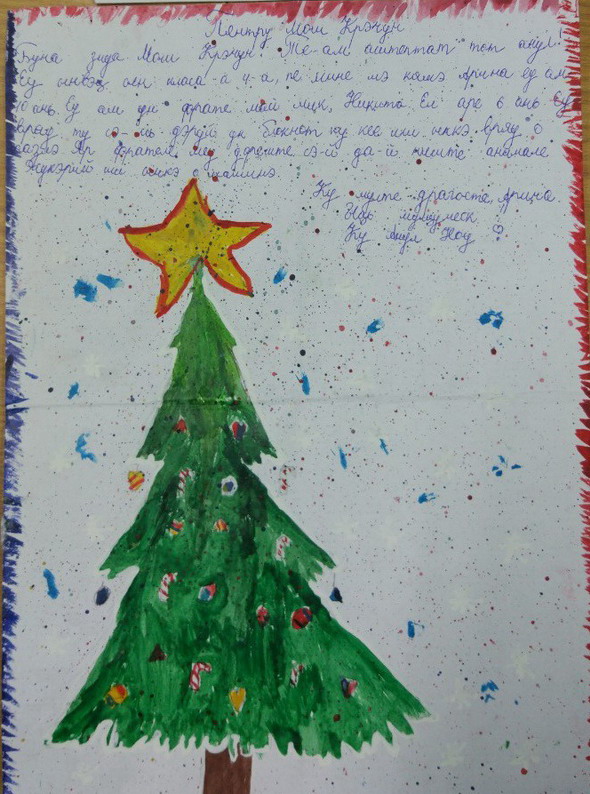 Пентру Мош Крэчун
Буна зиуа Мош Крэчун! Те-ам аштептат тот анул!
Еу ынвэц ын класа-а 4-а, пе мине мэ камэ Арина еу ам
10 ань. Еу ам ун фрате май мик, Никита Ел аре 6 ань. Еу
вряу ту сэ-мь дэруй ун блокнот ку кее ши ынкэ вряу о
Яр фрателе меу дореште сэ-й да-й ниште анимале
жукэрий ши ынкэ о машинэ.
Ку мулте драгосте, Арина.
Ыць мулцумеск.
Ку Анул Ноу